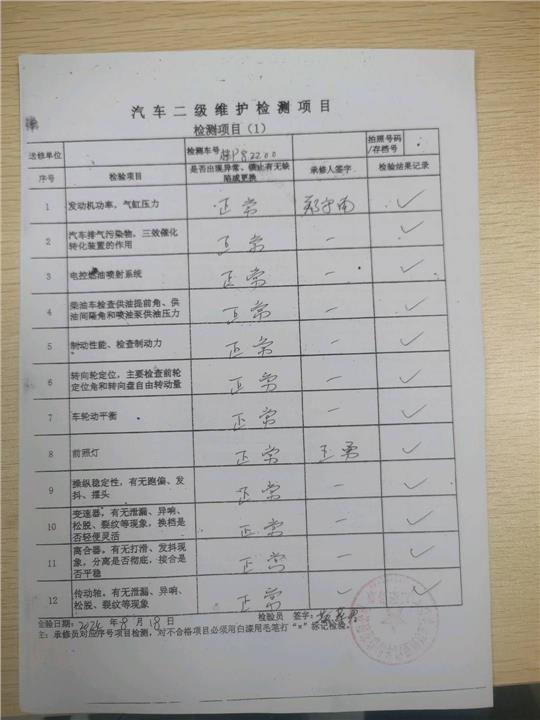 汽车二级维护检测项目
检测项目（1）
送修单位 检测车号 P82200 拍照号码/存档号
序号 检验项目 是否出现异常，锁止有无缺陷或更换 承修人签字 检验结果记录
1 发动机功率，气缸压力 正常 ✓
2 汽车排气污染物，三效催化转化装置的作用 正常 — ✓
3 电控燃油喷射系统 正常 — ✓
4 柴油车检查供油提前角、供油间隔角和喷油泵供油压力 正常 — ✓
5 制动性能、检查制动力 正常 — ✓
6 转向轮定位，主要检查前轮定位角和转向盘自由转动量 正常 — ✓
7 车轮动平衡 正常 — ✓
8 前照灯 正常 王勇 ✓
9 操纵稳定性，有无跑偏、发抖、摆头 正常 — ✓
10 变速器，有无泄漏、异响、松脱、裂纹等现象，换档是否轻便灵活 正常 — ✓
11 离合器，有无打滑、发抖现象，分离是否彻底，接合是否平稳 正常 — ✓
12 传动轴，有无泄漏、异响、松脱、裂纹等现象 正常 — ✓
全验日期：2024年8月18日 检验员 签字：
主：承修员对应序号项目检测，对不合格项目必须用白漆用毛笔打“×”标记检验。